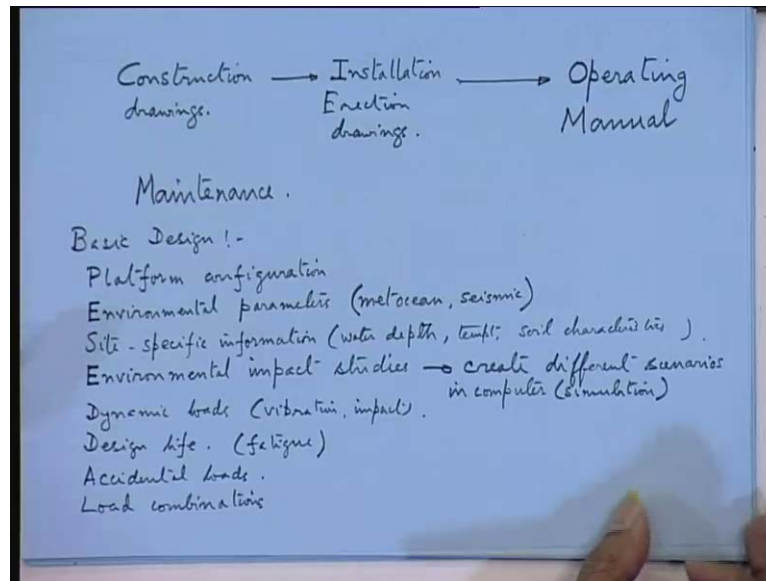 Construction → Installation → Operating
drawings. Erection Manual
drawings.
Maintenance.
Basic Design :-
Platform configuration
Environmental parameters (metocean, seismic)
Site-specific information (water depth, tempt; soil characteristics).
Environmental impact studies → create different scenarios
in computer (simulation)
Dynamic loads (vibration, impact).
Design life. (fatigue)
Accidental loads.
Load combinations